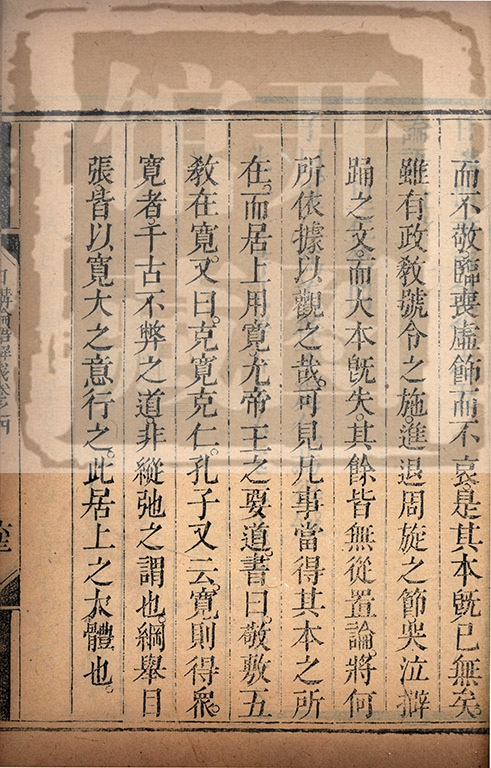 而不敬臨喪虛飾而不哀是其本旣已無矣。
雖有政敎號令之施。進退周旋之節哭泣擗
踊之文。而大本旣失。其餘皆無從置論。將何
所依據以觀之哉。可見凡事當得其本之所
在。而居上用寬尤帝王之要道。書曰。敬敷五
敎在寬。又曰。克寬克仁。孔子又云。寬則得衆。
寬者。千古不弊之道非縱弛之謂也。綱舉目
張皆以寬大之意行之。此居上之大體也。
日講論語解義卷之四